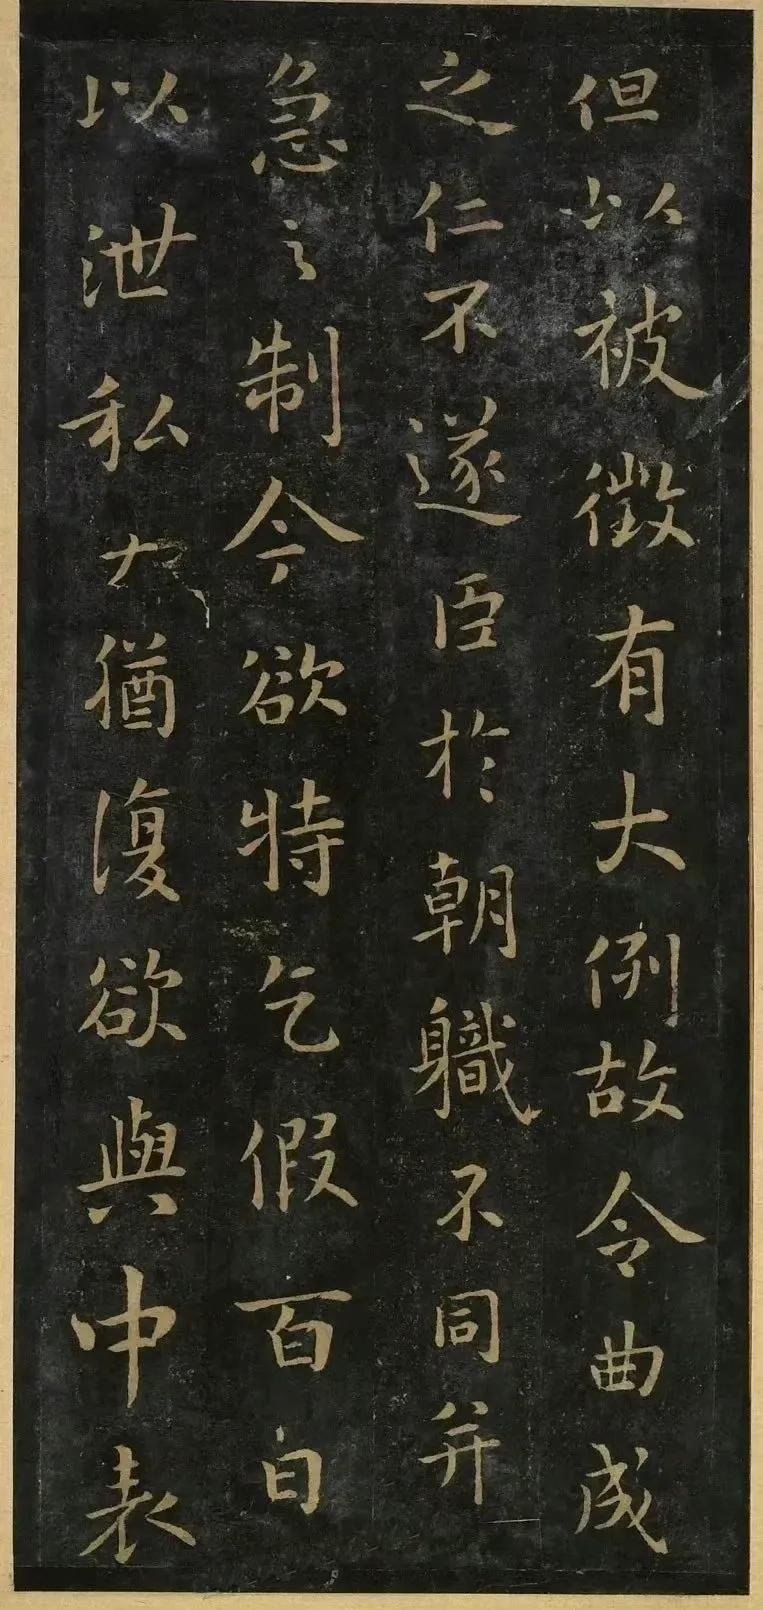 但以被徵有大例故令曲成
之仁不遂臣於朝職不同并
急之制今欲特乞假百日
以泄私大猶復欲與中表